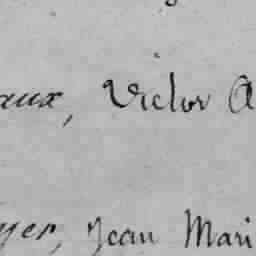 aux, Victor A
yer, Jean Mari